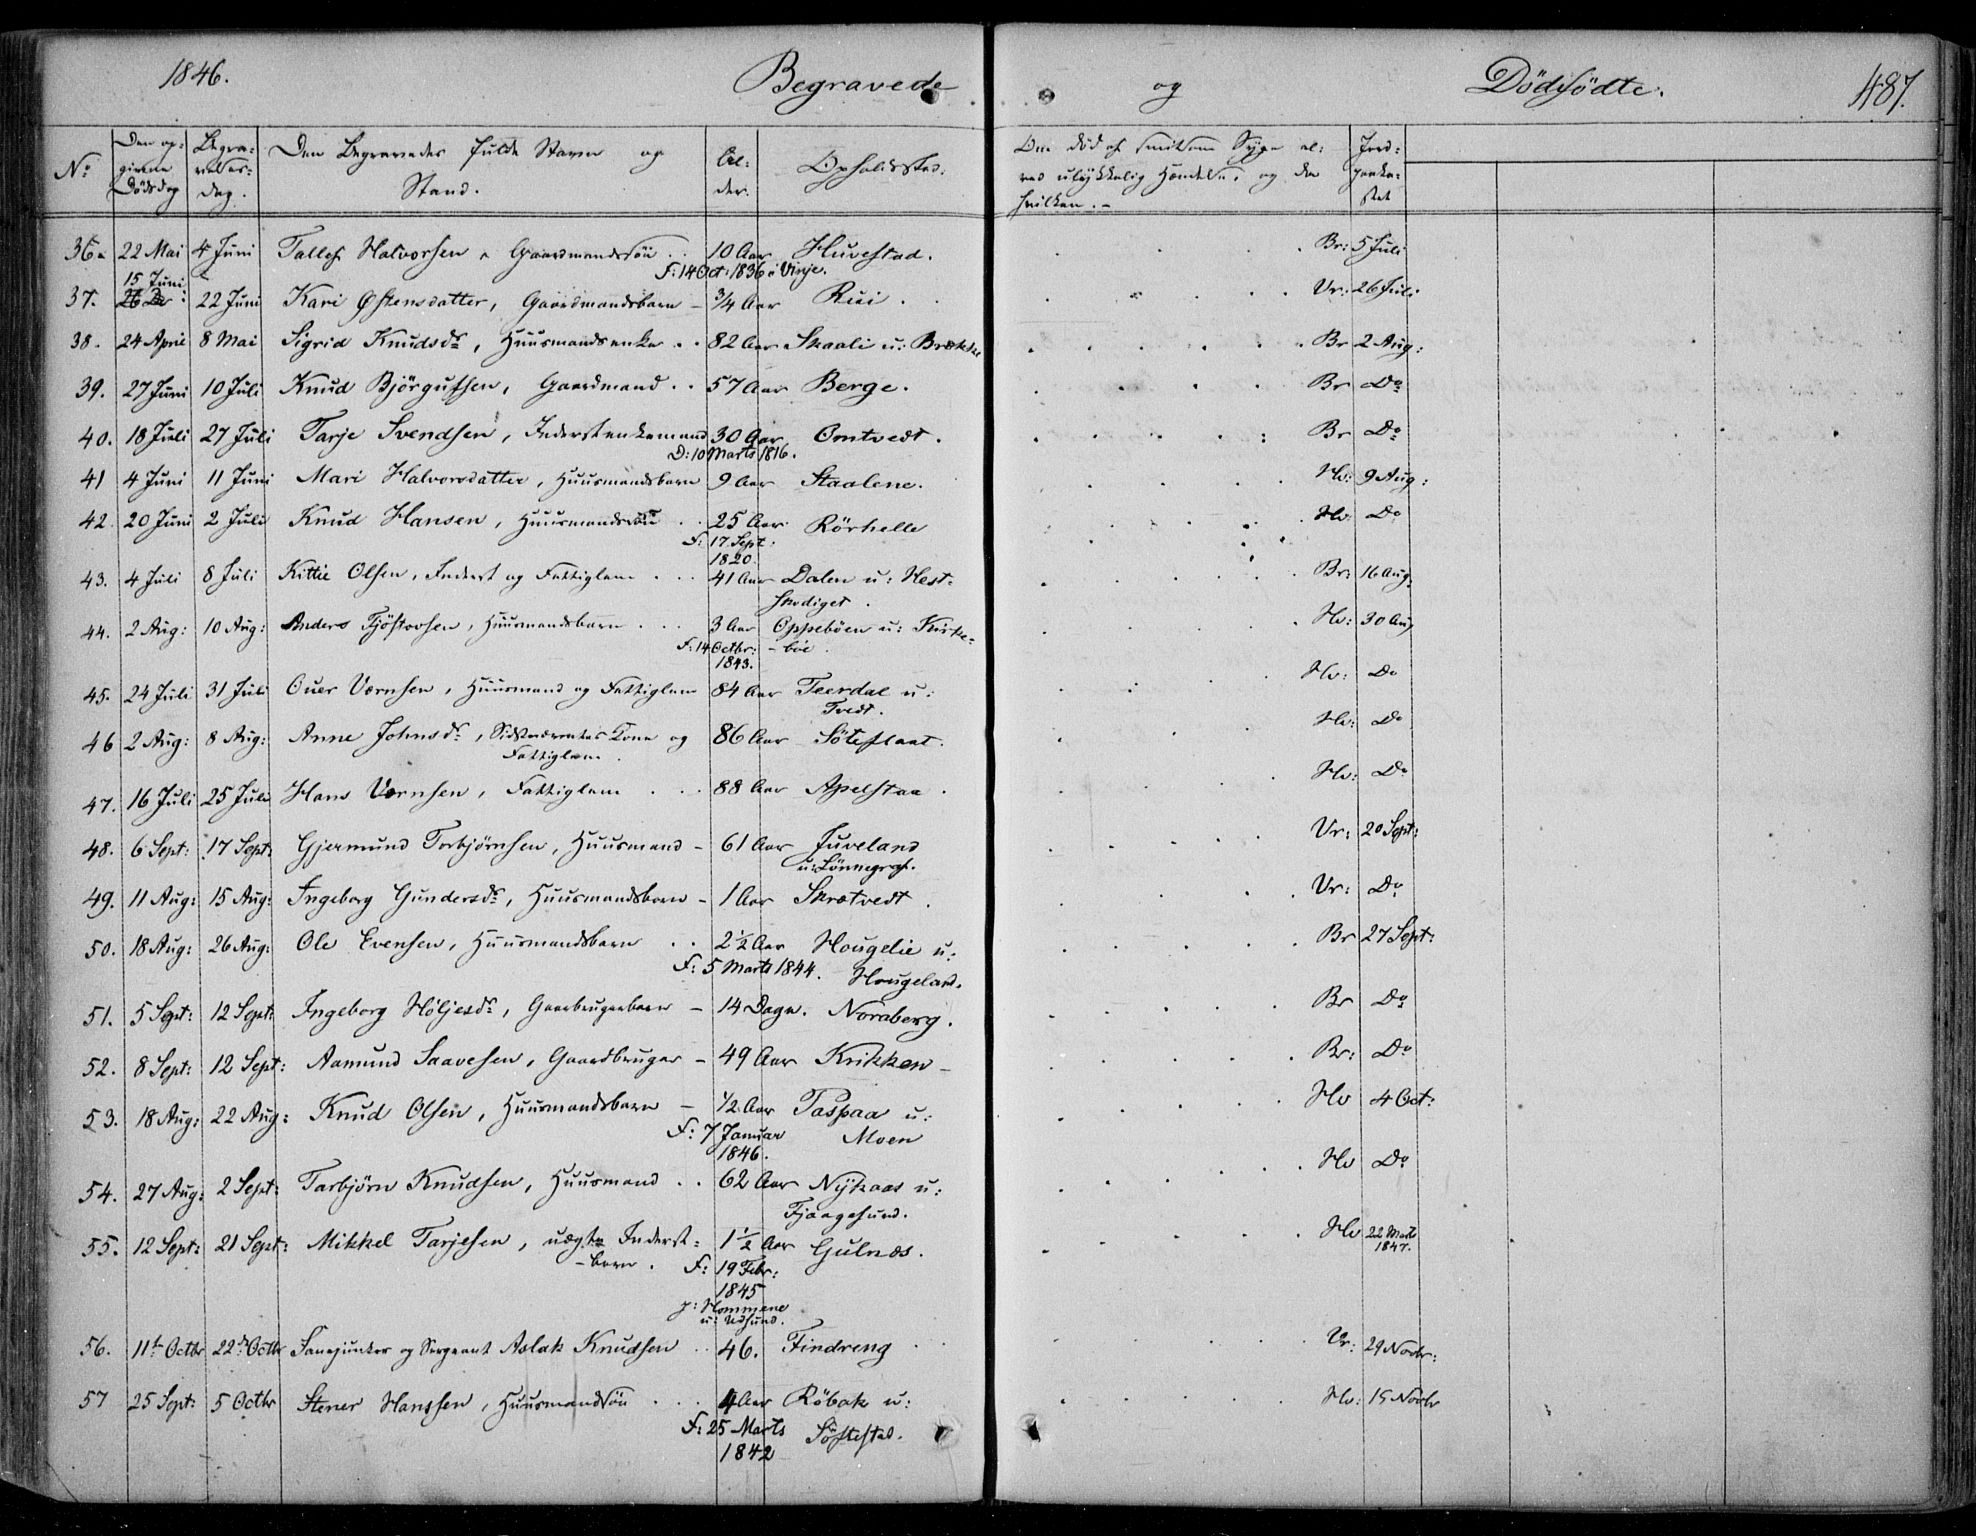 1846. Begravede og Dödfödte. 487.
No Den op-givne Dödsdag Begra-velses-dag. Den Begravedes fulde Navn og Stand. Al-der. Opholdssted. Om død af smitsom Syge el: ved ulykkelig Hændelse, og da hvilken. - Jord-paaka-stet
36. 22 Mai 4 Juni Tallef Halvorsen, Gaardmandssön .. 10 Aar Huvestad. Br: 5 Juli
F: 14 Oct: 1836 i Vinje.
37. 15 Juni 22 Juni Kari Østensdatter, Gaardmandsbarn - 3/4 Aar Rui. Vr: 26 Juli
38. 24 April 8 Mai Sigrid Knudsdr, Huusmandsenke .. 82 Aar Skaali u: Brække Br 2 Aug:
39. 27 Juni 10 Juli Knud Björgufsen, Gaardmand .. 57 Aar Berge. Br Do
40. 18 Juli 27 Juli Tarje Svendsen, Inderstenkemand 30 Aar Omtvedt. Br Do
D: 10 Marts 1816.
41 4 Juni 11 Juni Mari Halvorsdatter, Huusmandsbarn 9 Aar Staalene. Hv: 9 Aug:
42. 20 Juni 2 Juli Knud Hansen, Huusmandssön .. 25 Aar Rörhelle Hv: Do
F: 17 Sept: 1820.
43. 4 Juli 8 Juli Kittil Olsen, Inderst og Fattiglem ... 41 Aar Dalen u: Hest-
skodiget. Br: 16 Aug:
44. 2 Aug: 10 Aug: Anders Tjöstovsen, Huusmandsbarn ... 3 Aar Oppeböen u: Kirke-
-böe. Hv: 30 Aug
F: 14 Octbr: 1843.
45. 24 Juli 31 Juli Ouer Værnsen, Huusmand og Fattiglem 84 Aar Teerdal u:
Tvedt. Hv: Do
46 2 Aug: 8 Aug: Anne Johnsdr, Kone og 86 Aar Söteflaat. Hv: Do
Fattiglem.
47. 16 Juli 25 Juli Hans Værnsen, Fattiglem ... 88 Aar Apelstaa. Hv: Do
48. 6 Sept: 17 Sept: Gjermund Torbjørnsen, Huusmand - 61 Aar Juveland
u: Lönnegrav. Vr: 20 Sept:
49. 11 Aug: 15 Aug: Ingeborg Gundersdr, Huusmandsbarn - 1 Aar Skrætvedt. Vr: Do
50. 18 Aug: 26 Aug: Ole Evensen, Huusmandsbarn .. 2½ Aar Hougelie u:
F: 5 Marts 1844. Hougeland. Br 27 Sept:
51. 5 Sept: 12 Sept: Ingeborg Höljesdr, Gaardbrugerbarn - 14 Dage. Noraberg. Br Do
52. 8 Sept: 12 Sept: Aamund Saavesen, Gaardbruger - 49 Aar Krikken - Br: Do
53. 18 Aug: 22 Aug: Knud Olsen, Huusmandsbarn - ½ Aar Taspaa u:
F: 7 Januar 1846. Moen Hv 4 Oct:
54. 27 Aug: 2 Sept: Tarbjörn Knudsen, Huusmand .. 62 Aar Nykaas u:
Fjaagesund. Hv Do
55. 12 Sept: 21 Sept: Mikkel Tarjesen, uægte Inderst-
-barn. 1½ Aar Gulnæs. Hv 22 Marts 1847.
F: 19 Febr: 1845
p: Hommene
u: Udsund.
56. 11te Octbr 22de Octbr Fanejunker og Sergeant Aslak Knudsen .. 46. Findreng Vr: 29 Novbr:
57 25 Sept: 5 Octbr Stener Hanssen, Huusmandsön ... 4 Aar Röbak u:
F: 25 Marts 1842 Söftestad. Hv: 15 Novbr